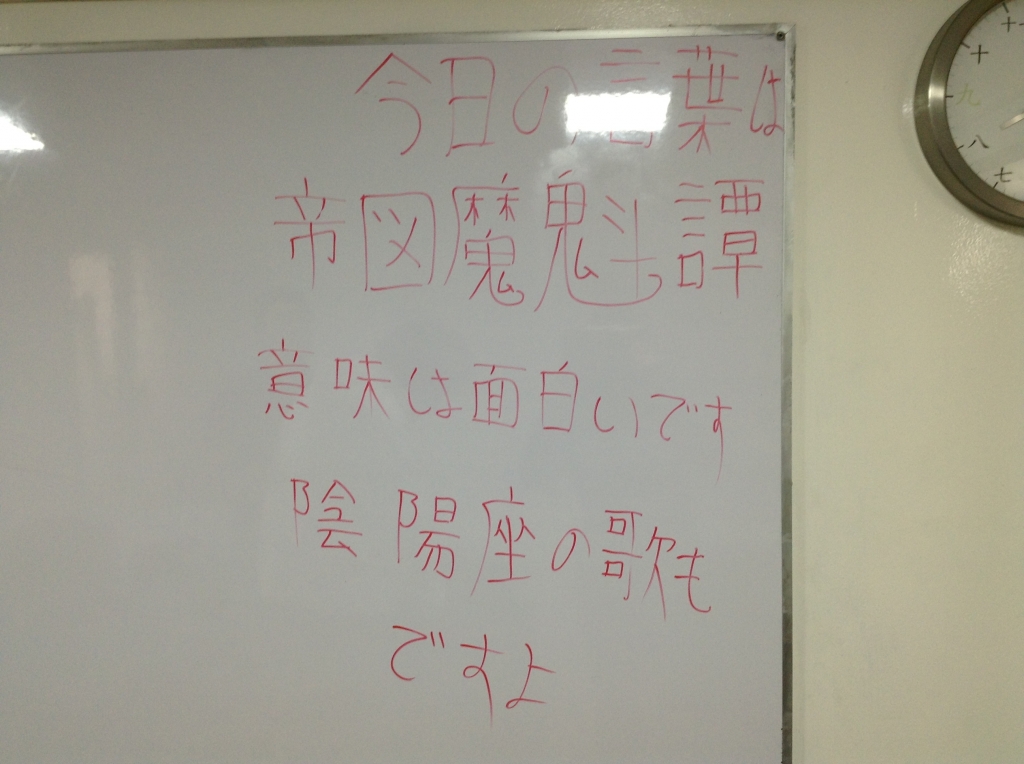 今日の言葉は
帝図魔魁譚
意味は面白いです
陰陽座の歌も
ですよ
十一
十
九
八
七